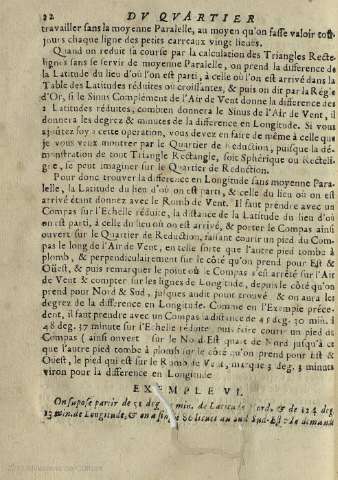 22 DV QVARTIER
travailler sans la moyenne Paralelle, au moyen qu'on fasse valoir toû-
jours chaque ligne des petits carreaux vingt lieuës.
Quand on reduit sa course par la calculation des Triangles Recte-
lignes sans se servir de moyenne Paralelle, on prend la difference de
la Latitude du lieu d'où l'on est parti, à celle où l'on est arrivé dans la
Table des Latitudes réduites ou croissantes, & puis on dit par la Régle
d'Or, si le Sinus Complément de l'Air de Vent donne la difference des
Latitudes réduites, combien donnera le Sinus de l'Air de Vent, il
donnera les degrez & minutes de la difference en Longitude. Si vous
ajoûtez foy à cette operation, vous devez en faire de même à celle que
je vous veux montrer par le Quartier de Reduction, puisque la dé-
monstration de tout Triangle Rectangle, soit Spherique ou Recteli-
gne, le peut imaginer sur le Quartier de Reduction.
Pour donc trouver la difference en Longitude sans moyenne Para-
lelle, la Latitude du lieu d'où on est parti, & celle du lieu où on est
arrivé étant donnez avec le Romb de Vent. Il faut prendre avec un
Compas sur l'Echelle réduite, la distance de la Latitude du lieu d'où
on est parti, à celle du lieu où on est arrivé, & porter le Compas ainsi
ouvert sur le Quartier de Reduction, faisant courir un pied du Com-
pas le long de l'Air de Vent, en telle sorte que l'autre pied tombe à
plomb, & perpendiculairement sur le côté qu'on prend pour Est &
Oüest, & puis remarquer le point où le Compas s'est arrêté sur l'Air
de Vent & compter sur les lignes de Longitude, depuis le côté qu'on
prend pour Nord & Sud, jusques audit point trouvé & on aura les
degrez de la difference en Longitude. Comme en l'Exemple préce-
dent, il faut prendre avec un Compas la distance de 45 deg. 30 min. à
48 deg. 37 minute sur l'Echelle réduite, puis faire courir un pied de
Compas (ainsi ouvert sur le Nord-Est quart de Nord jusqu'à ce
que l'autre pied tombe à plomb sur le côté qu'on prend pour Est &
Ouest, le pied qui est sur le Romb de Vent, marque 3 deg. 3 minute
viron pour la difference en Longitude
EXEMPLE VI.
On supose partir de 51 deg. min. de Latitude Nord, & de 124 deg.
13 min. de Longitude, & on a singlé 80 lieues au Sud Sud-Est: Je demande